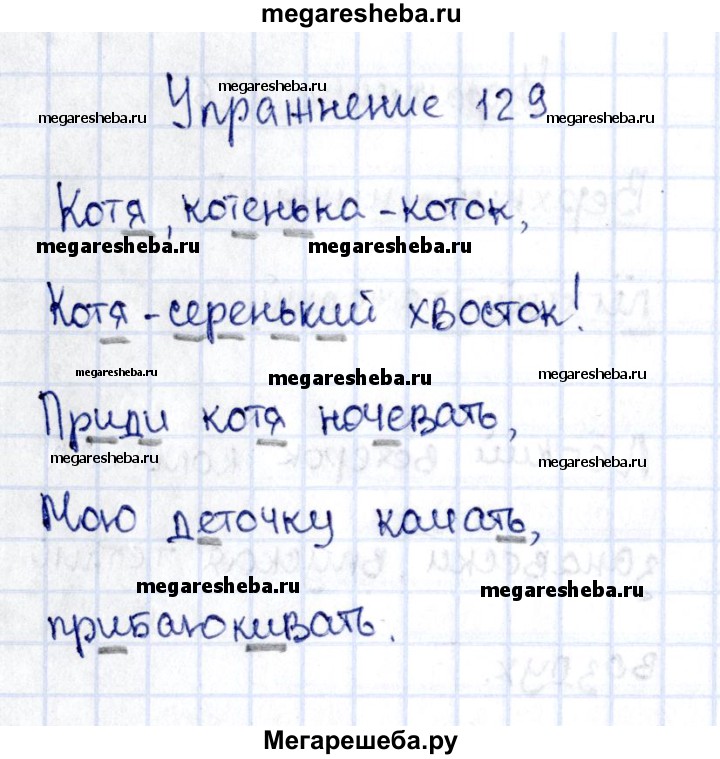 megaresheba.ru
Упражнение 129
megaresheba.ru
megaresheba.ru
megaresheba.ru
Котя, котенька - коток,
megaresheba.ru
megaresheba.ru
Котя - серенький хвосток!
megaresheba.ru
megaresheba.ru
megaresheba.ru
Приди котя ночевать,
megaresheba.ru
megaresheba.ru
Мою деточку качать,
megaresheba.ru
megaresheba.ru
прибаюкивать.
Мегарешеба.ру